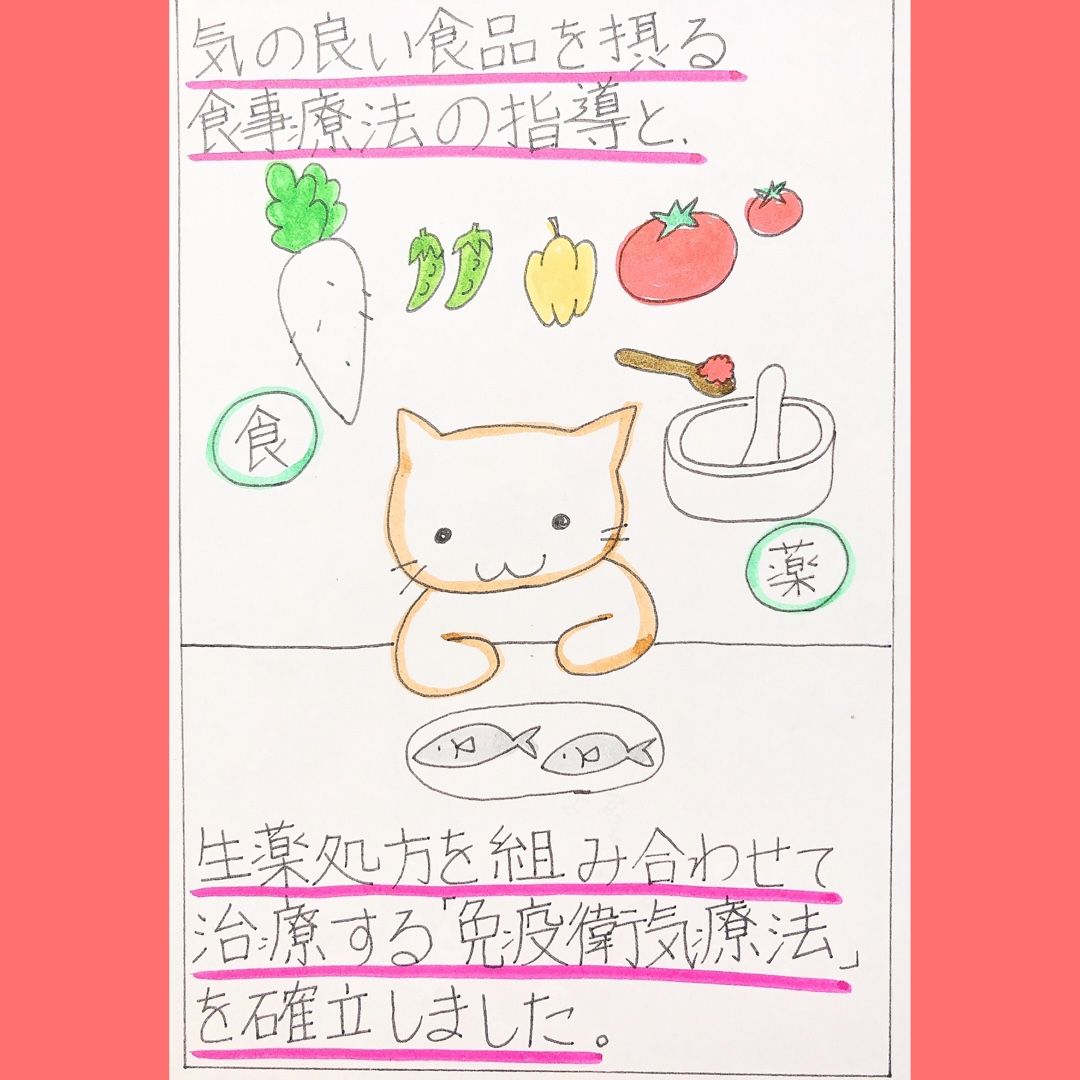 気の良い食品を摂る
食事療法の指導と、
食
薬
生薬処方を組み合わせて
治療する「免疫衛気療法」
を確立しました。